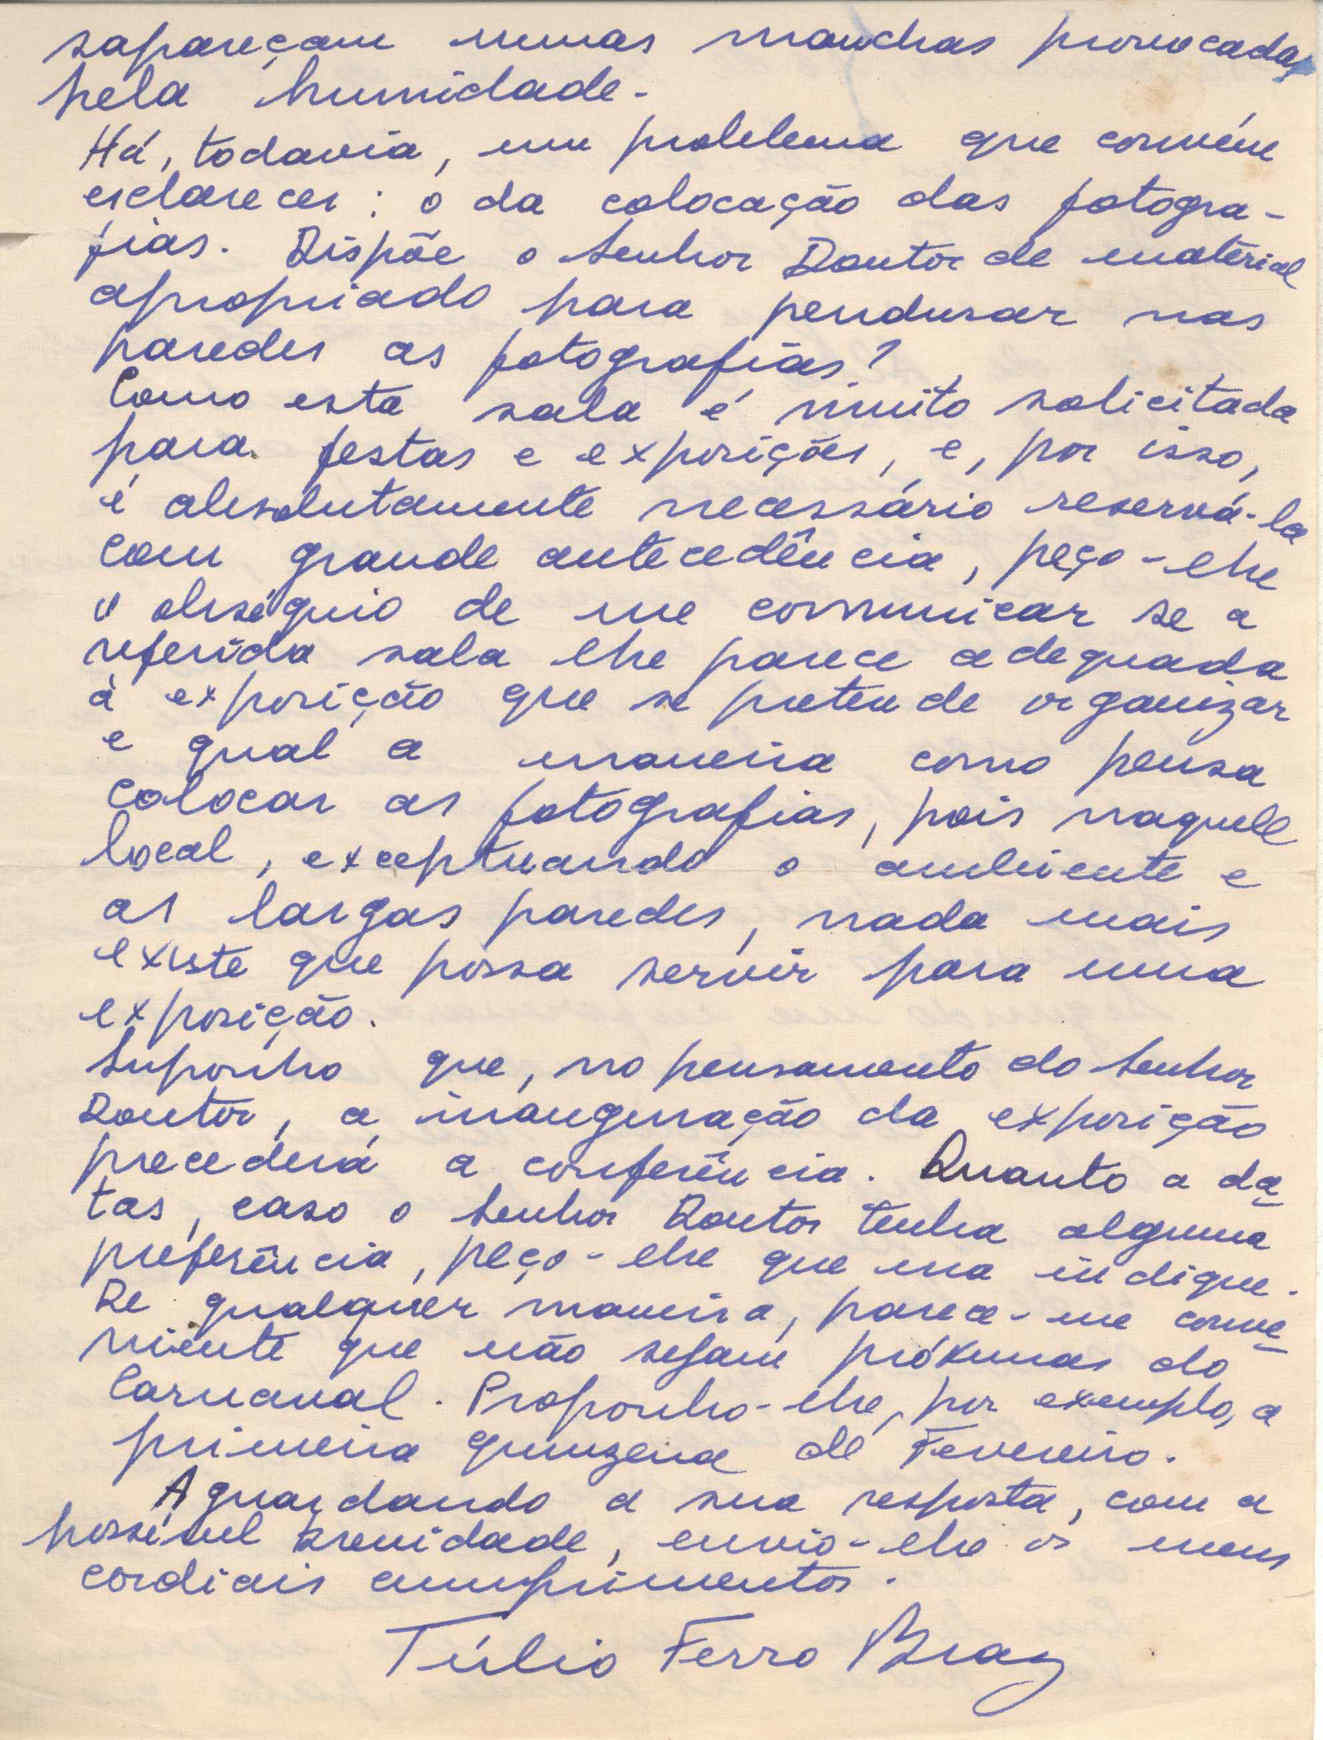 sapareçam umas manchas provocadas
pela humidade.
Há, todavia, um problema que convém
esclarecer: o da colocação das fotogra-
fias. Dispõe o Senhor Doutor de material
apropriado para pendurar nas
paredes as fotografias?
Como esta sala é muito solicitada
para festas e exposições, e, por isso,
é absolutamente necessário reservá-la
com grande antecedência, peço-lhe
o obséquio de me comunicar se a
referida sala lhe parece adequada
à exposição que se pretende organizar
e qual a maneira como pensa
colocar as fotografias, pois naquele
local, exceptuando o ambiente e
as largas paredes, nada mais
existe que possa servir para uma
exposição.
Suponho que, no pensamento do Senhor
Doutor, a inauguração da exposição
precederá a conferência. Quanto a da-
tas, caso o Senhor Doutor tenha alguma
preferência, peço-lhe que ma indique.
De qualquer maneira, parece-me conve-
niente que não sejam próximas do
Carnaval. Proponho-lhe, por exemplo, a
primeira quinzena de Fevereiro.
Aguardando a sua resposta, com a
possível brevidade, envio-lhe os meus
cordiais cumprimentos.
Túlio Ferro Braz